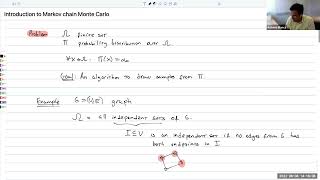 Introduction to Markov chain Monte Carlo
Problem Ω finite set
π probability distribution over Ω.
Goal: An algorithm to draw samples from π.
Example G=(V,E) graph
Ω = all independent sets of G.
I ⊆ V is an independent set if no edges from G has
both endpoints in I.